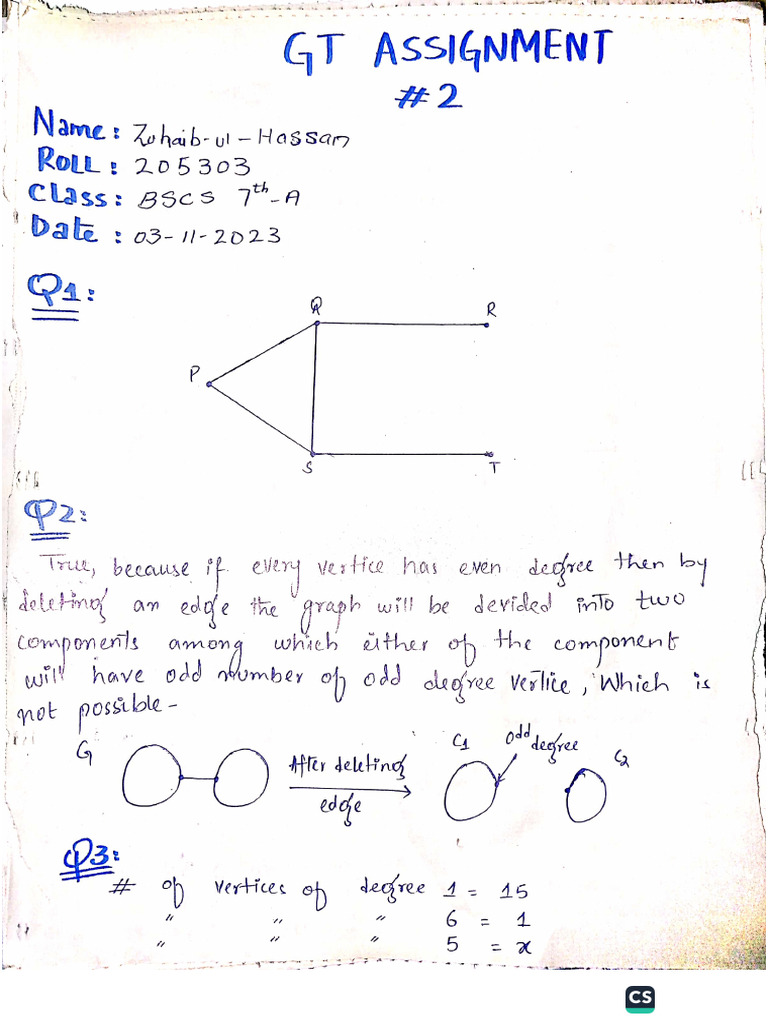 GT ASSIGNMENT
#2
Name: Zohaib-ul-Hassan
Roll: 205303
Class: BSCS 7th-A
Date: 03-11-2023
Q1:
Q
R
P
S
T
Q2:
True, because if every vertice has even degree then by
deleting an edge the graph will be devided into two
components among which either of the component
will have odd number of odd degree vertice, which is
not possible-
G
After deleting
edge
C1
Odd
degree
C2
Q3:
# of vertices of degree 1 = 15
" " " 6 = 1
" " " 5 = x
CS